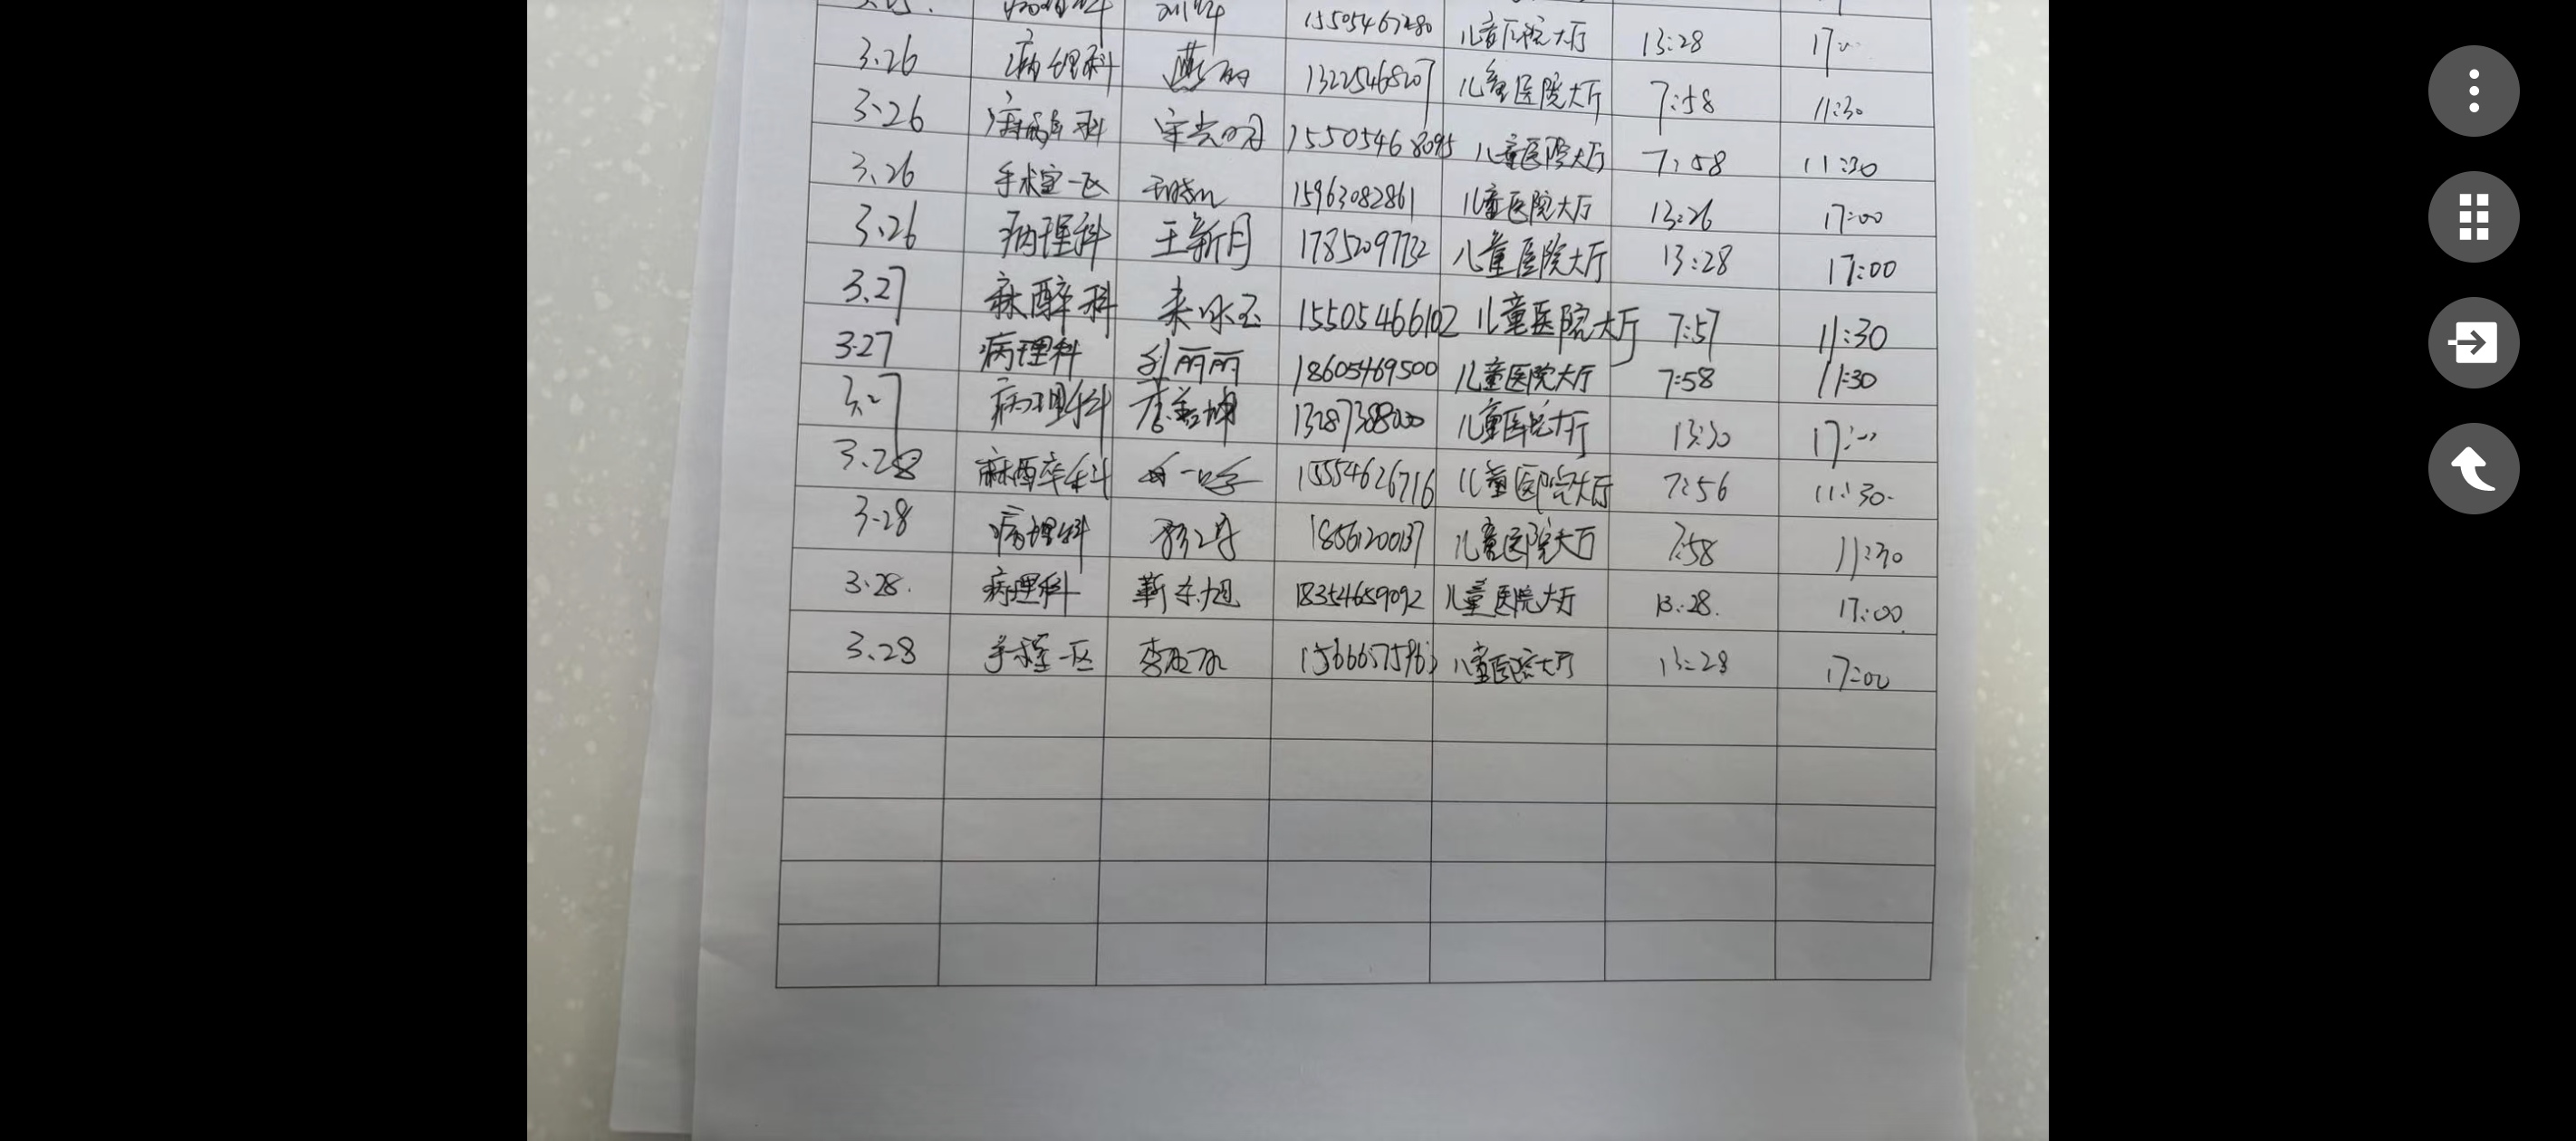 15505467280 儿童医院大厅 13:28
3.26 病理科 13225468207 儿童医院大厅 7:58 11:30
3.26 15505468095 儿童医院大厅 7:58 11:30
3.26 手术室一区 15963082861 儿童医院大厅 13:26 17:00
3.26 病理科 王新月 17852097732 儿童医院大厅 13:28 17:00
3.27 麻醉科 来冰玉 15505466102 儿童医院大厅 7:57 11:30
3.27 病理科 刘丽丽 18605469500 儿童医院大厅 7:58 11:30
3.27 病理科 儿童医院大厅 13:30
3.28 麻醉科 15554626716 儿童医院大厅 7:56 11:30.
3.28 病理科 18561200137 儿童医院大厅 7:58 11:30
3.28. 病理科 靳东旭 18354659092 儿童医院大厅 13:28. 17:00
3.28 手术室一区 儿童医院大厅 13:28 17:00